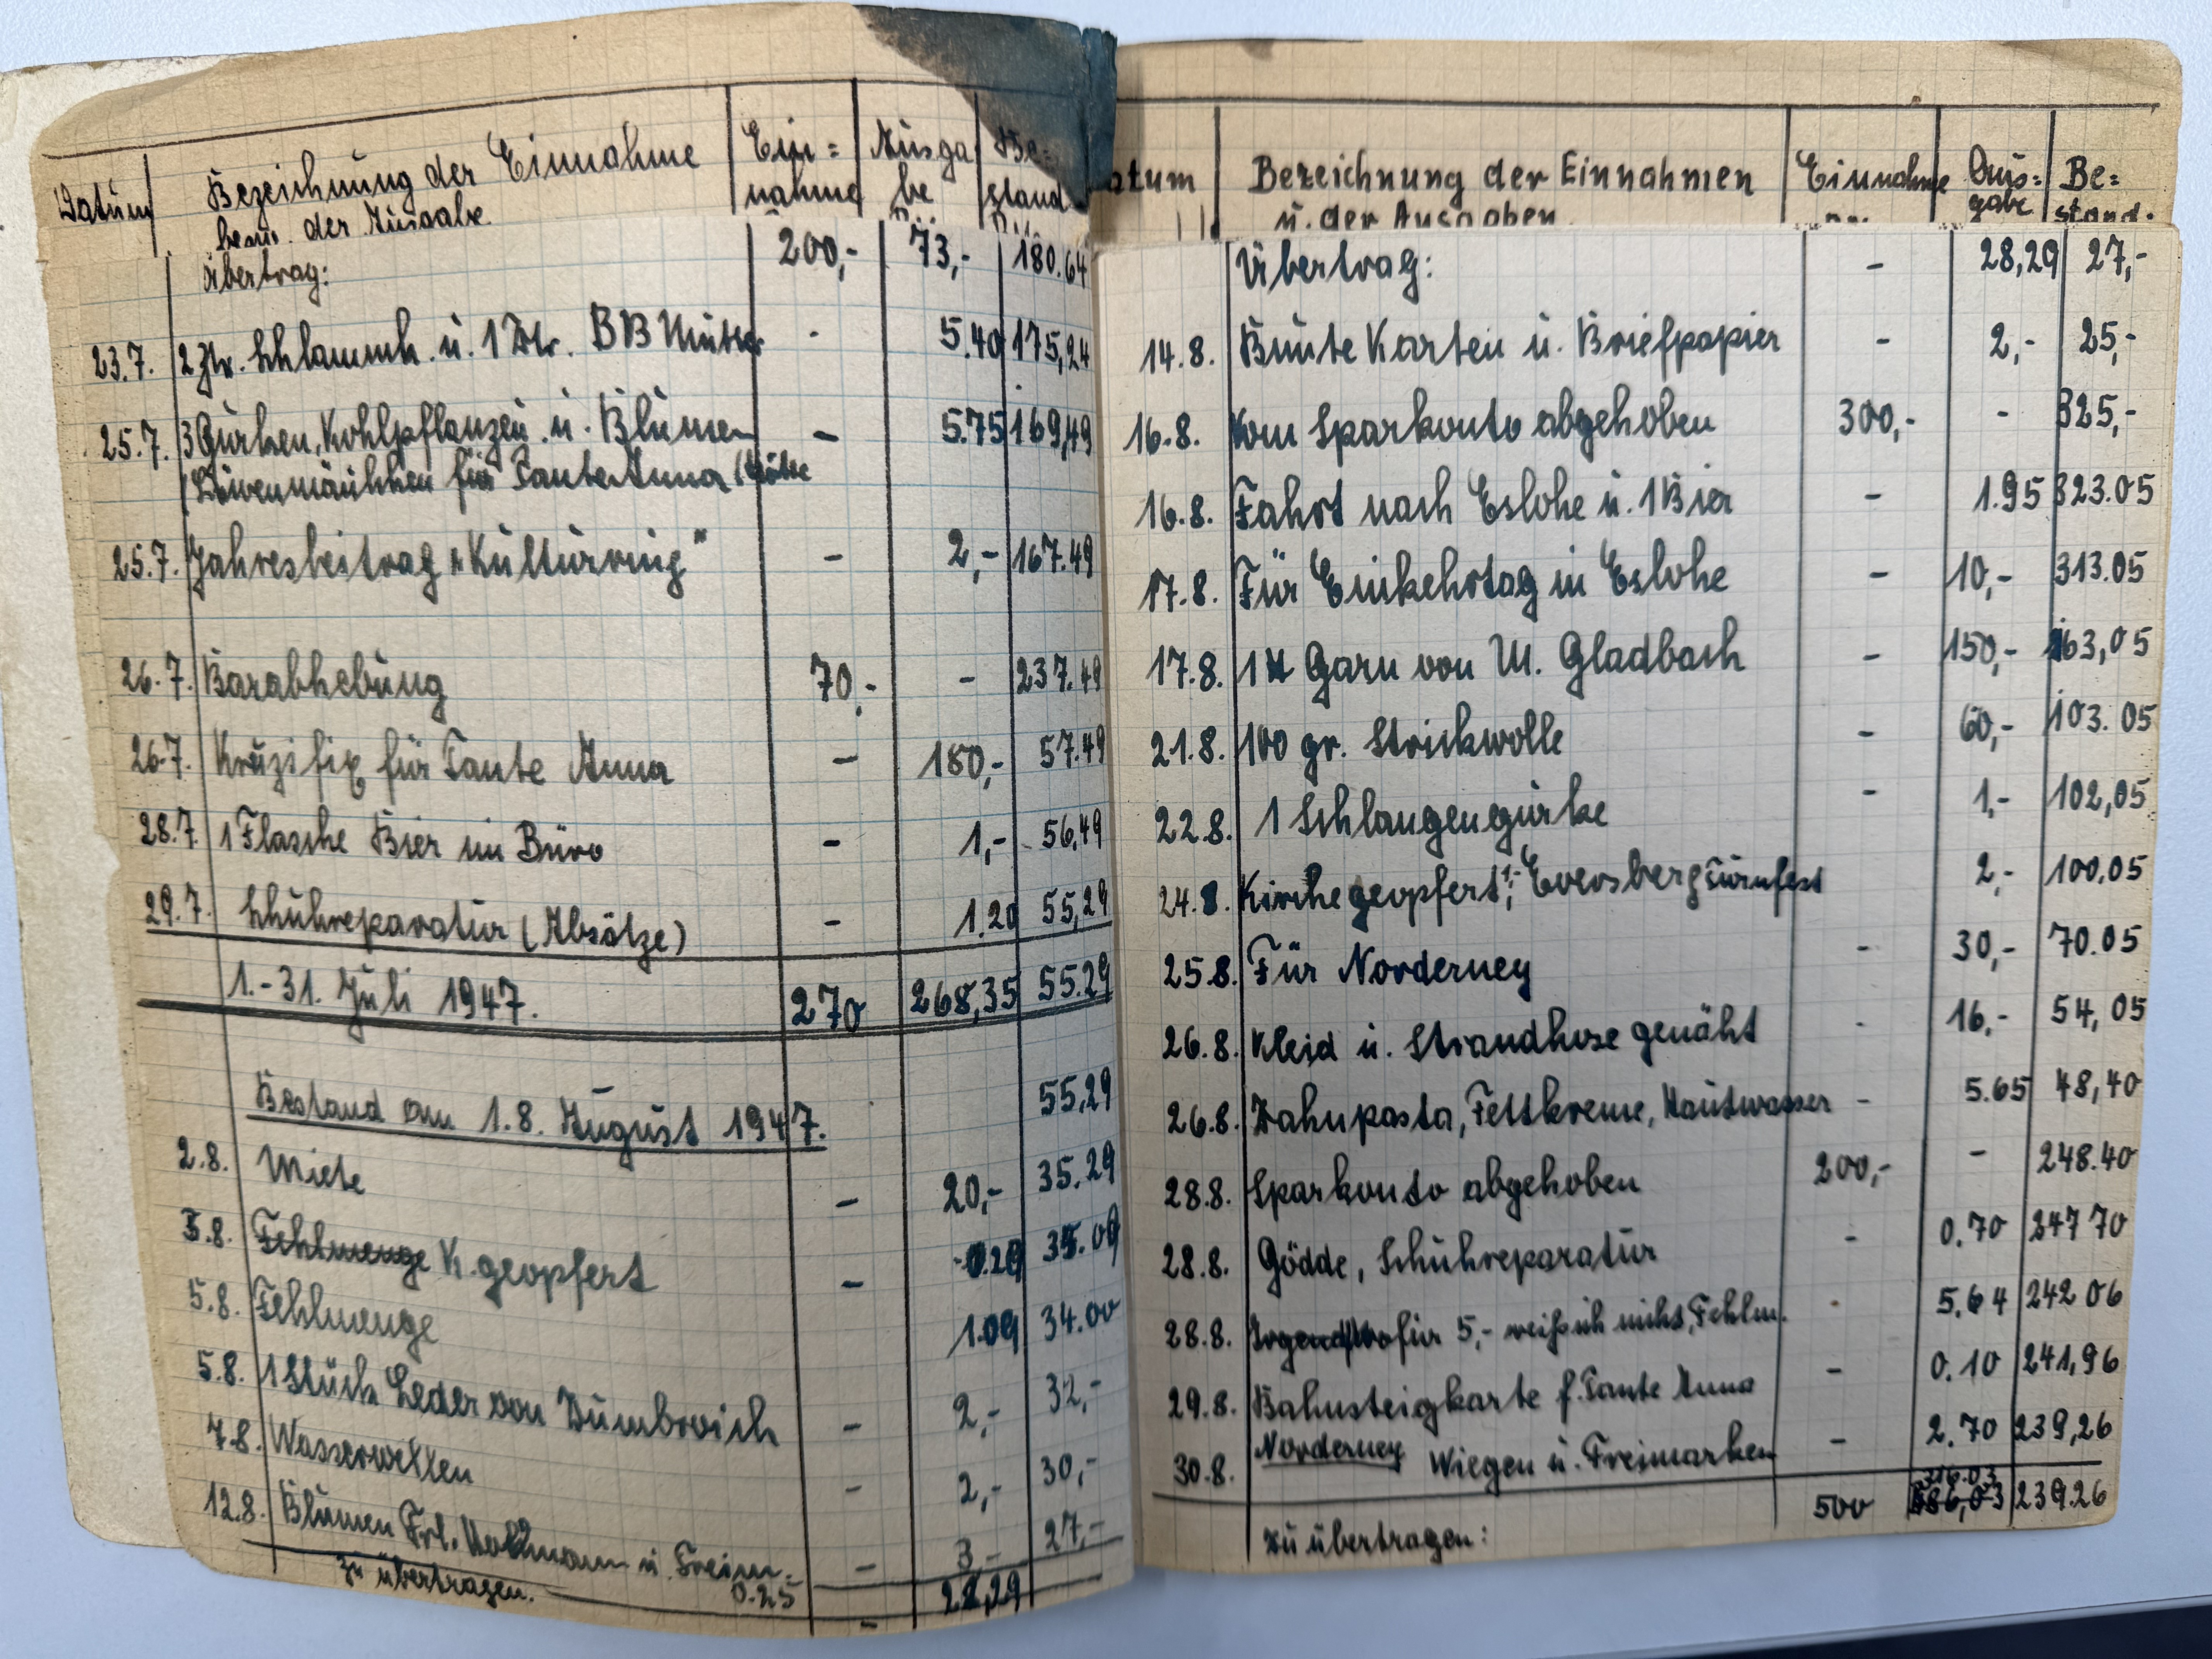 Datum Bezeichnung der Einnahme Ein= Ausga Be=
bezw. der Ausgabe nahme be stand
Übertrag: 200,- 73,- 180.64
23.7. 2 Ztr. Schlammk. u. 1 Ztr. BB Mutter - 5.40 175,24
25.7. 3 Gurken, Kohlpflanzen u. Blumen - 5.75 169,49
(Löwenmäulchen für Tante Anna
25.7. Jahresbeitrag "Kulturring" - 2,- 167.49
26.7. Barabhebung 70,- - 237.49
26.7. Kruzifix für Tante Anna - 180,- 57.49
28.7. 1 Flasche Bier im Büro - 1,- 56,49
29.7. Schuhreparatur (Absätze) - 1.20 55,29
1.-31. Juli 1947. 270 268,35 55.29
Bestand am 1.8. August 1947. 55,29
2.8. Miete - 20,- 35.29
3.8. Fehlmenge K. geopfert - 0.20 35.09
5.8. Fehlmenge 1.09 34.00
5.8. 1 Stück Leder von Dumbroich - 2,- 32,-
7.8. Wasserwellen - 2,- 30,-
12.8. Blumen Frl. u. Freim. - 3,- 27,-
0.25
zu übertragen. - 28,29
atum Bezeichnung der Einnahmen Einnahme Aus= Be=
u. der Ausgaben. gabe stand.
Übertrag: - 28,29 27,-
14.8. Bunte Karten u. Briefpapier - 2,- 25,-
16.8. Vom Sparkonto abgehoben 300,- - 325,-
16.8. Fahrt nach Eslohe u. 1 Bier - 1.95 323.05
17.8. Für Einkehrtag in Eslohe - 10,- 313.05
17.8. 1 Garn von M. Gladbach - 150,- 163,05
21.8. 100 gr. Strickwolle - 60,- 103.05
22.8. 1 Schlangengurke - 1,- 102,05
24.8. Kirche geopfert 1,-; Eversberg Turnfest 2,- 100,05
25.8. Für Norderney - 30,- 70.05
26.8. Kleid u. Strandhose genäht - 16,- 54,05
26.8. Zahnpasta, Fettkreme, Hautwasser - 5.65 48,40
28.8. Sparkonto abgehoben 200,- - 248.40
28.8. Gödde, Schuhreparatur - 0.70 247 70
28.8. Irgendwofür 5,- weiß ich nicht, Fehlm. - 5.64 242 06
29.8. Bahnsteigkarte f. Tante Anna - 0.10 241,96
30.8. Norderney Wiegen u. Freimarken - 2.70 239,26
316.03
500 286,03 239.26
Zu übertragen: